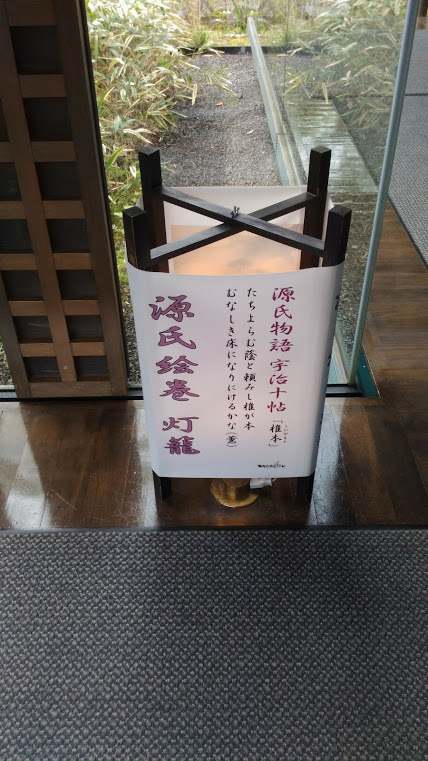 源氏物語 宇治十帖「椎本」
しいがもと
たちよらむ蔭と頼みし椎が本
むなしき床になりにけるかな(薫)
源氏絵巻 灯籠